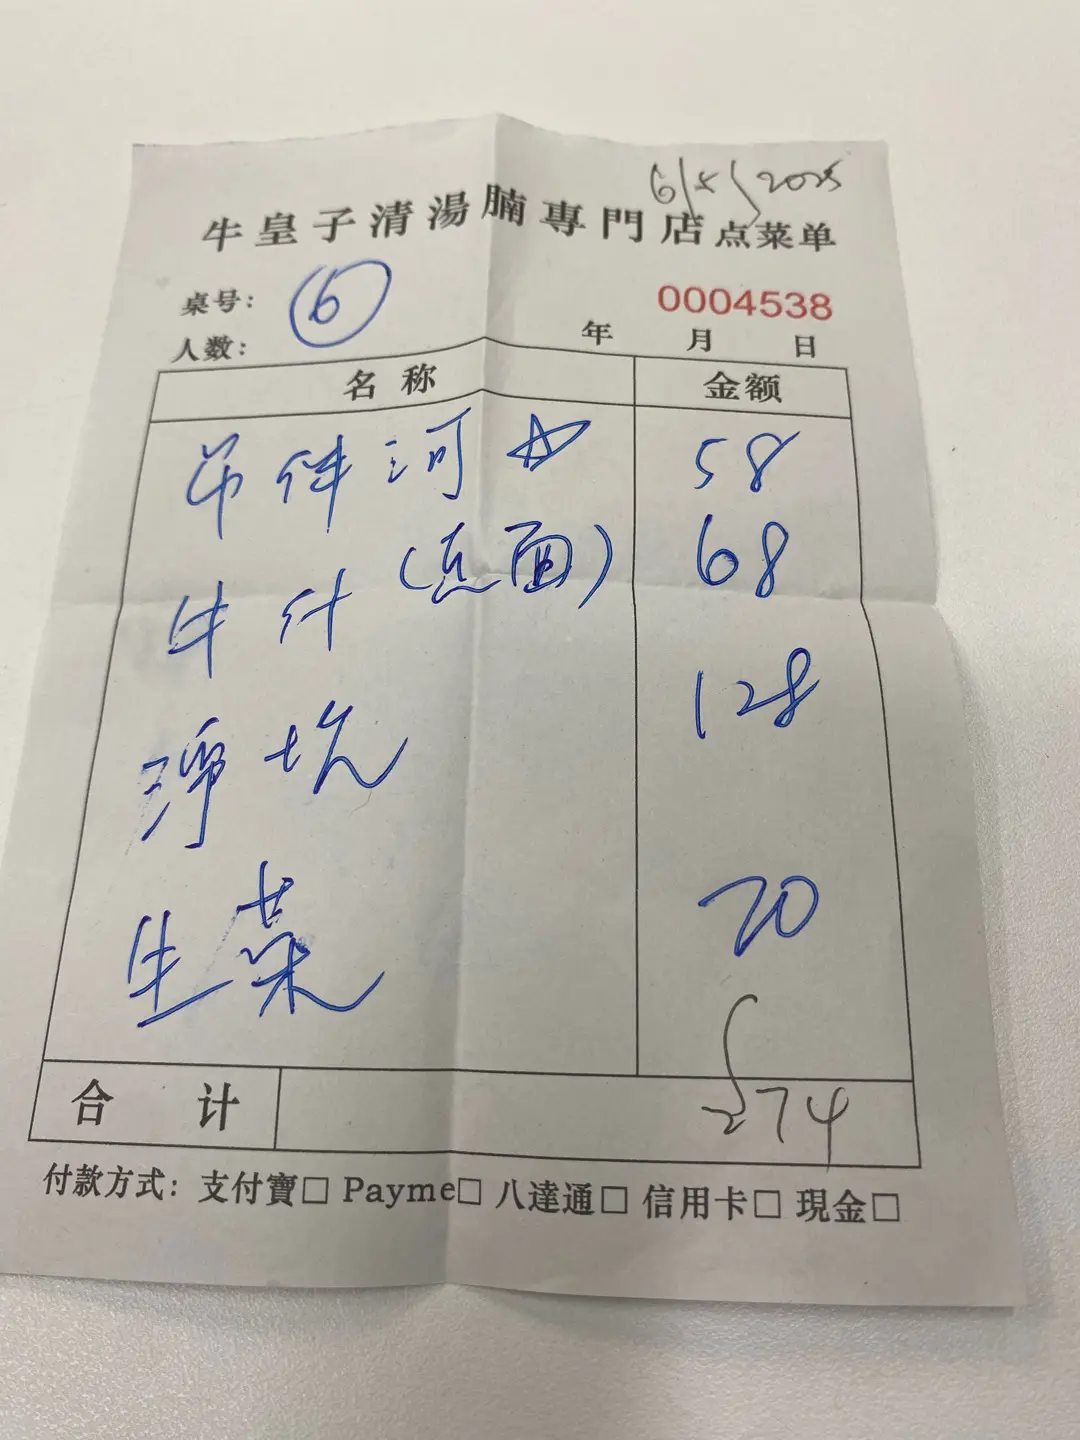 6/5/2025
牛皇子清湯腩專門店点菜单
桌号: 6
0004538
人数:
年 月 日
名称 金额
河 58
(豆面) 68
牛什
淨坑 128
生菜 20
合计 274
付款方式: 支付寶□ Payme□ 八達通□ 信用卡□ 現金□